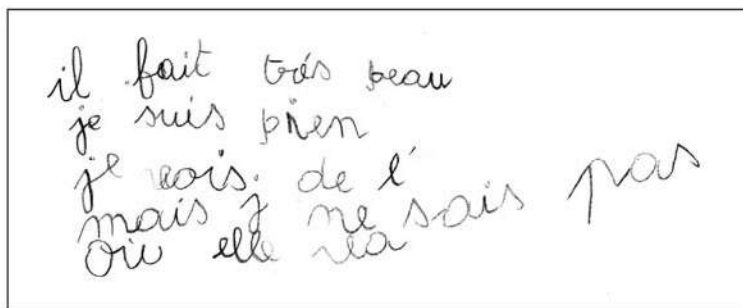 il fait trés beau
je suis bien
je vois de l'
mais j ne sais pas
où elle va